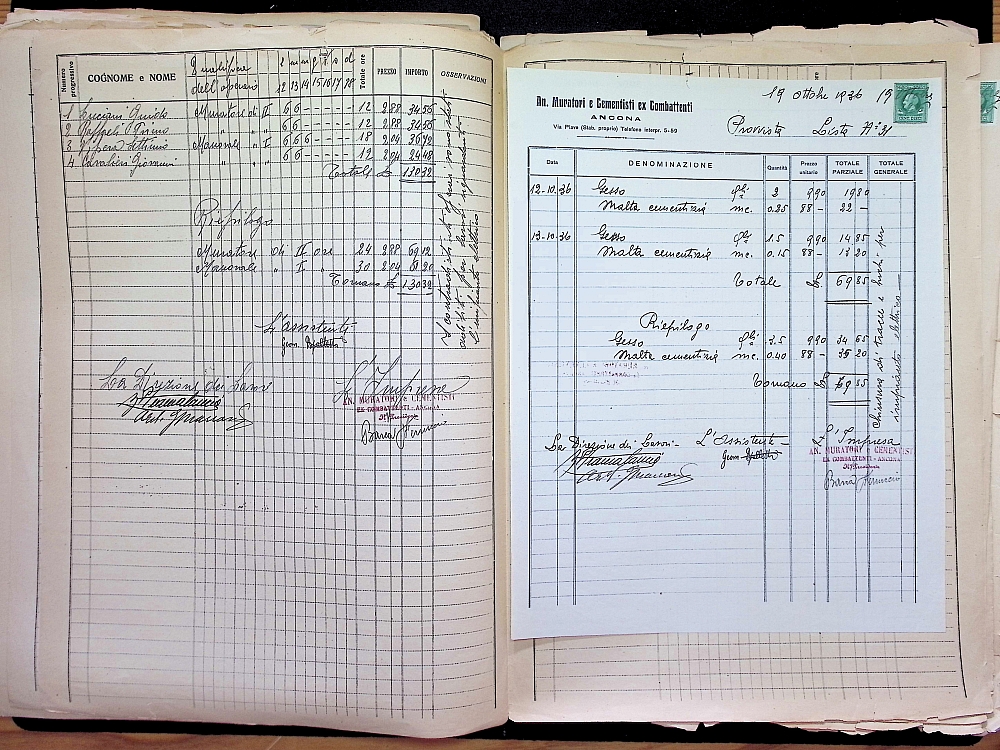 Numero progressivo COGNOME e NOME Qualifica dell'operaio 12 13 14 15 16 17 18 Totale ore PREZZO IMPORTO OSSERVAZIONI
1 Guido Muratore di II 6 6 - - - - - 12 2.88 34.56
2 " " " 6 6 - - - - - 12 2.88 34.56
3 Manovale " I 6 6 6 - - - - 18 2.04 36.72
4 Giovanni " " " 6 6 - - - - - 12 2.04 24.48
Totale £ 130.32
Riepilogo
Muratore di II ore 24 2.88 69.12
Manovale " I " 30 2.04 61.20
Tornano £ 130.32
L'assistente
geom.
La Direzione dei Lavori
L'Impresa
AN. MURATORI e CEMENTISTI
EX COMBATTENTI - ANCONA
l'impianto elettrico
19 Ottobre 1936 19
An. Muratori e Cementisti ex Combattenti
ANCONA
Via Piave (Stab. proprio) Telefono interpr. 5-59
Provvista Lista N° 21
Data DENOMINAZIONE Quantità Prezzo unitario TOTALE PARZIALE TOTALE GENERALE
12-10.36 Gesso qli 2 9.90 19.80
Malta cementizia mc. 0.25 88 - 22 -
13-10-36 Gesso qli 1.5 9.90 14.85
Malta cementizia mc. 0.15 88 - 13 20
Totale £ 69.85
Riepilogo
Gesso qli 3.5 9.90 34 65
Malta cementizia mc. 0.40 88 - 35 20
Tornano £ 69.85
Chiusura di tracce e buchi per
impianto elettrico
La Direzione dei Lavori - L'Assistente L'Impresa
Geom.
AN. MURATORI e CEMENTISTI
EX COMBATTENTI - ANCONA